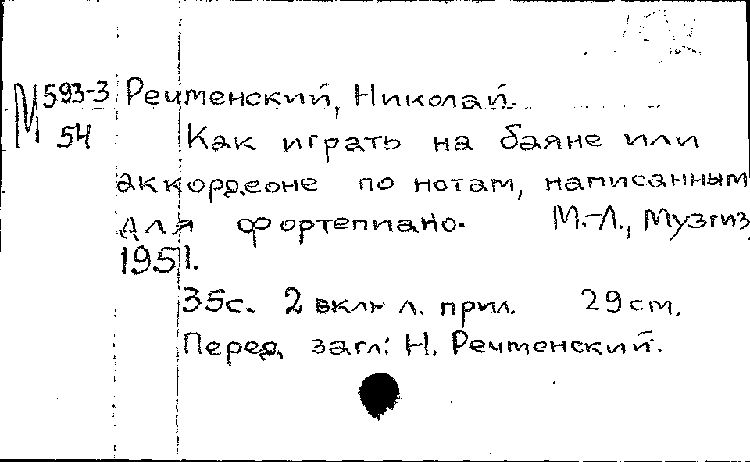 М 593-3 Речменский, Николай.
54 Как играть на баяне или
аккордеоне по нотам, написанным
для фортепиано. М.-Л., Музгиз,
1951.
35с. 2 вкл. л. прил. 29 см.
Перед загл: Н. Речменский.